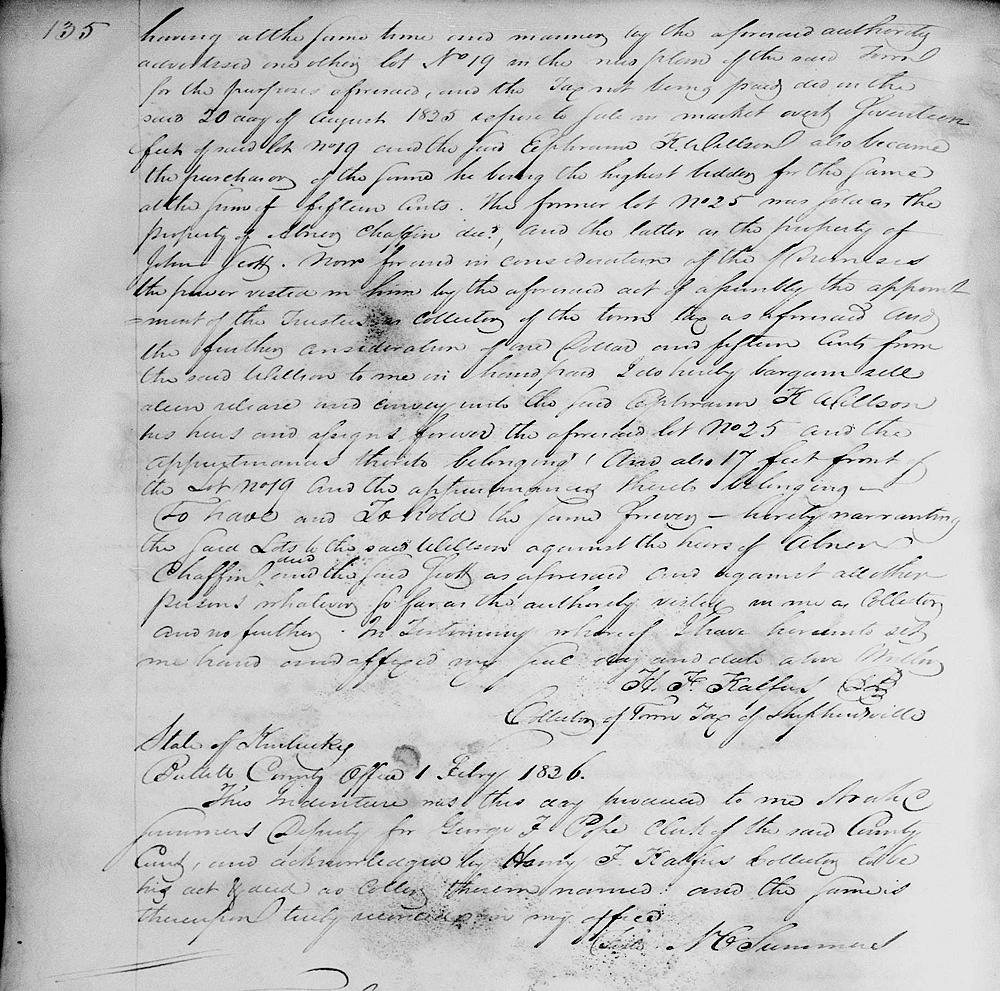 135
having at the same time and manner by the aforesaid authority
advertised one other lot No 19 in the new plan of the said Town
for the purposes aforesaid, and the Tax not being paid did on the
said 20 day of August 1835 expose to sale in market overt Seventeen
feet of said lot No 19 and the said Ephraim K. Willson also became
the purchaser of the same he being the highest bidder for the same
at the sum of fifteen cents. The former lot No 25 was sold as the
property of Abner Chaffin decd, and the latter as the property of
John Scott. Now for and in consideration of the Premises
the power vested in him by the aforesaid act of assembly the appoint
=ment of the Trustees as Collector of the town tax as aforesaid and
the further consideration of one Dollar and fifteen Cents from
the said Willson to me in hand paid I do hereby bargain sell
alien release and convey unto the said Ephraim K Willson
his heirs and assigns forever the aforesaid lot No 25 and the
appurtenances thereto belonging! And also 17 feet front of
the Lot No 19 and the appurtenances thereto belonging —
To have and To hold the same forever — hereby warranting
the said Lots to the said Willson against the heirs of Abner
Chaffin and the said Scott as aforesaid and against all other
persons whatever so far as the authority vested in me as Collector
and no further. In Testimony whereof I have hereunto set
me hand and affixed my seal day and date above Written
H. F. Kalfus
Collector of Town Tax of Shepherdsville
State of Kentucky
Bullitt County Office 1 Febry 1836.
This Indenture was this day produced to me
Summers Deputy for George F. Pope Clerk of the said County
Court, and acknowledged by Henry F. Kalfus Collector to be
his act & deed as Collr therein named: and the same is
thereupon truly recorded in my office
N C Summers